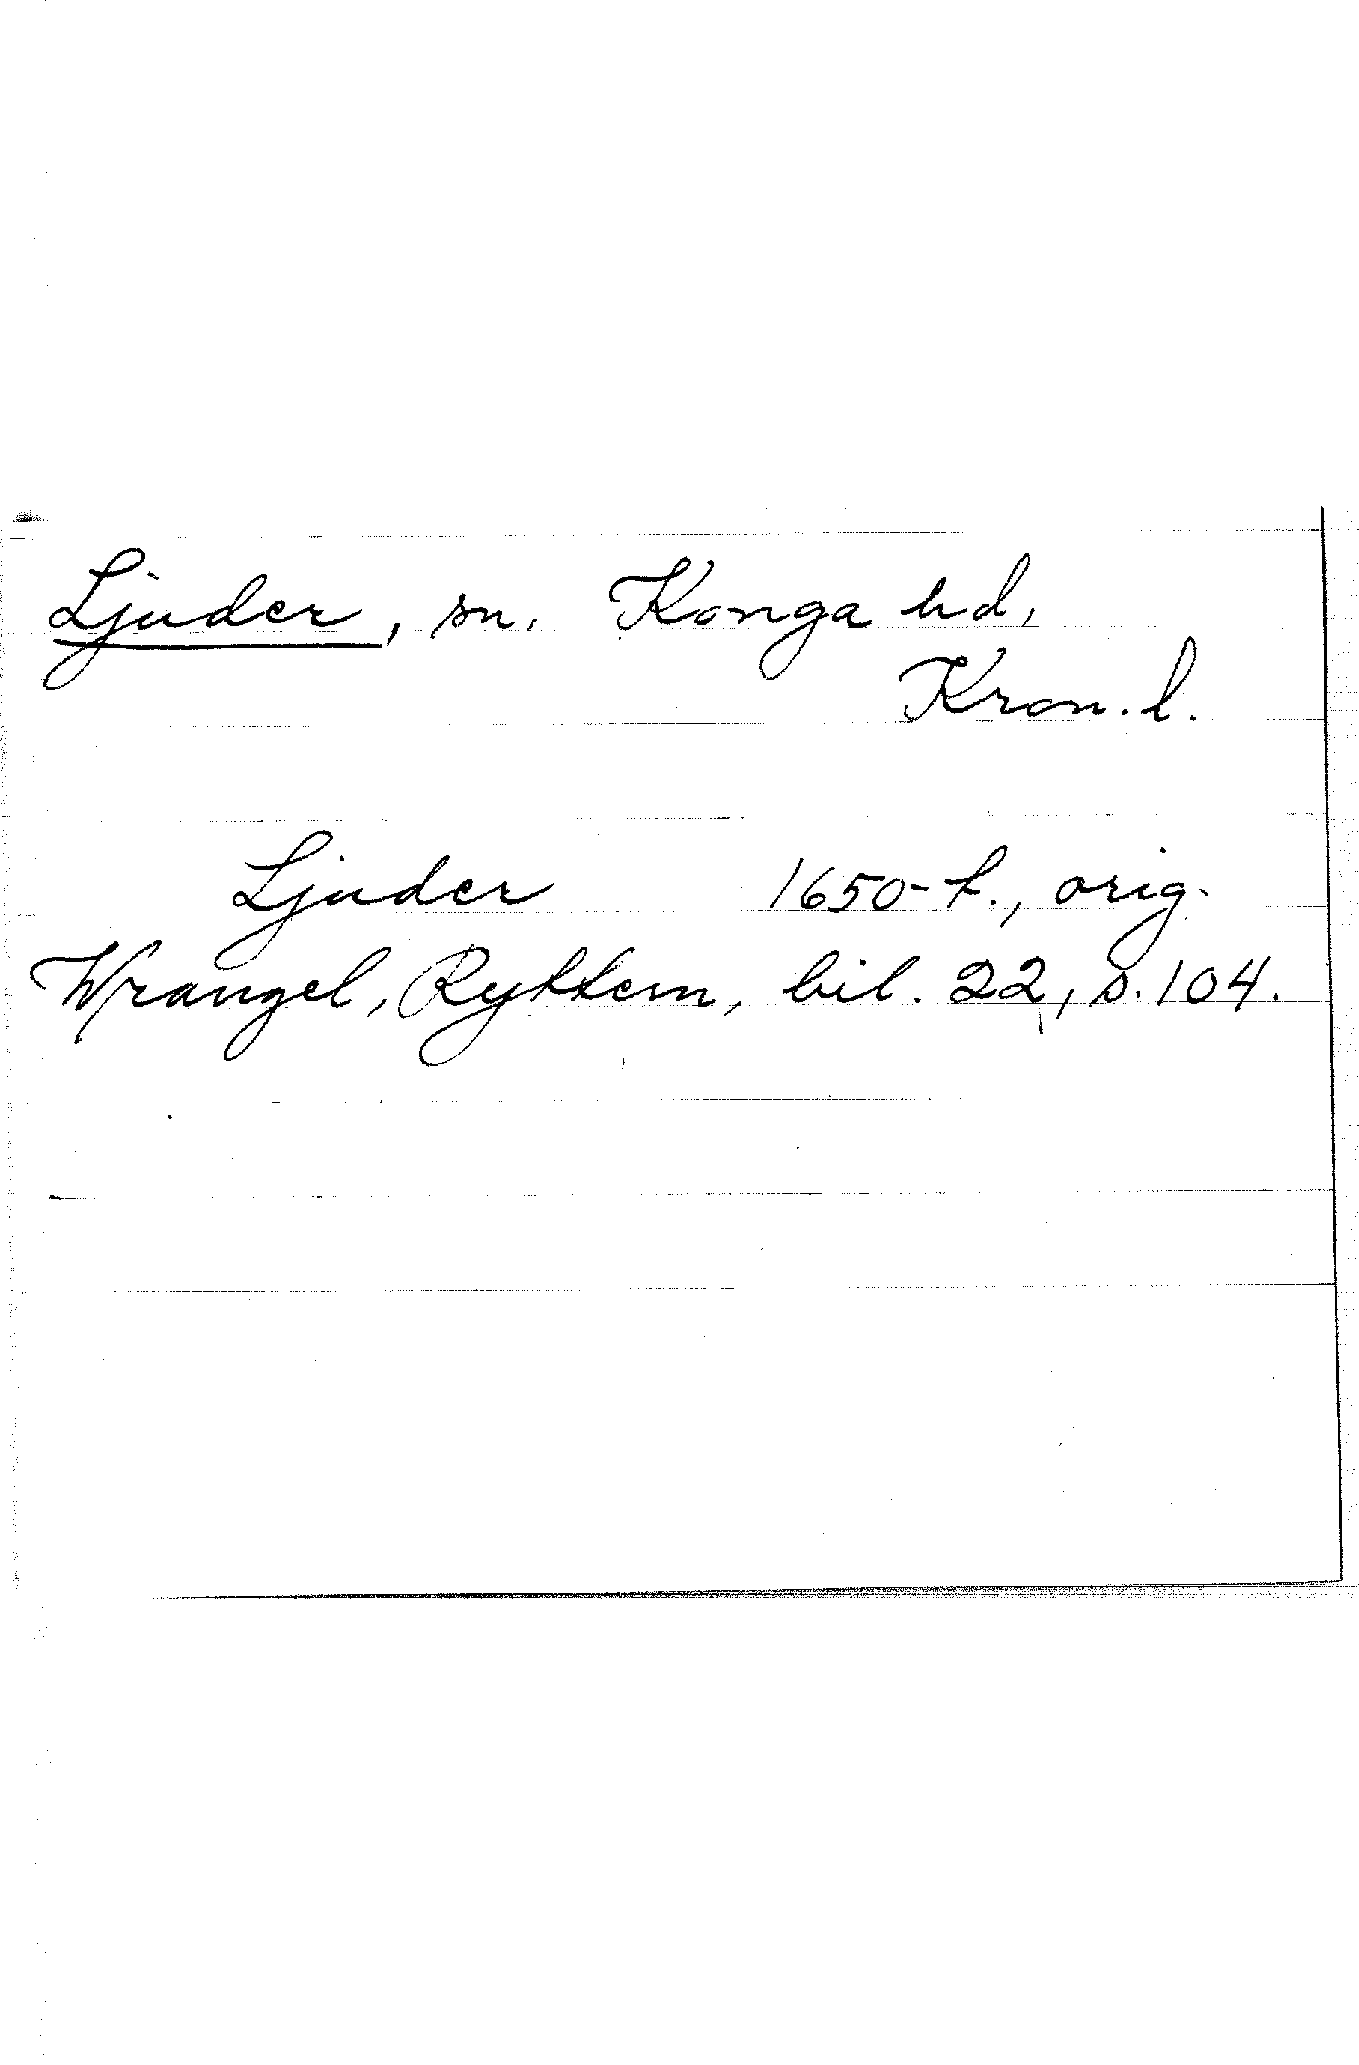 Ljuder, sn. Konga hd,
Kron. l.
Ljuder 1650-t., orig.
Wrangel, Ryttern, bil. 22, s. 104.